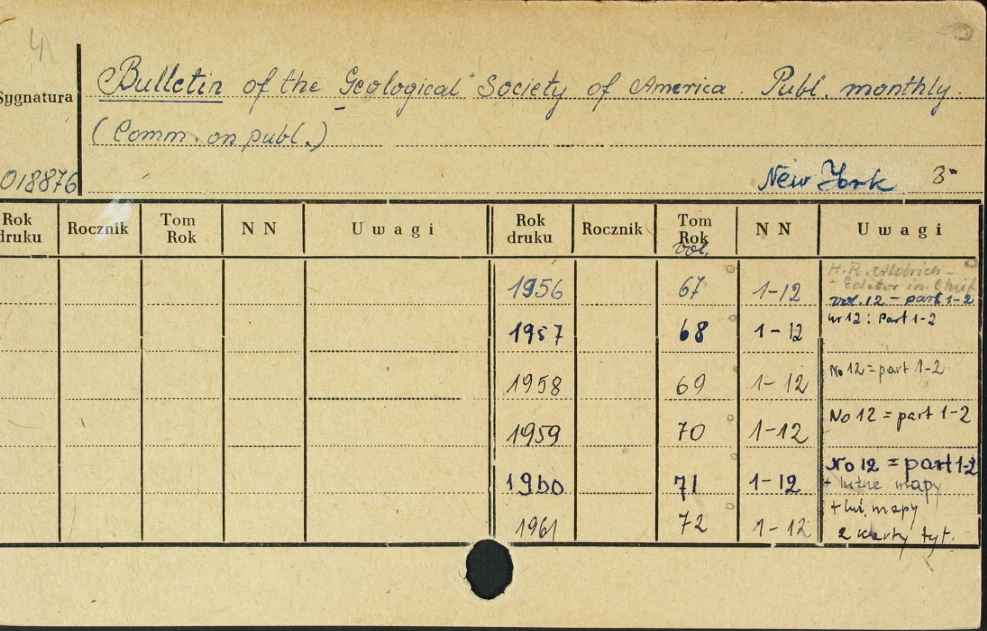 4
Sygnatura Bulletin of the Geological Society of America. Publ. monthly.
(Comm. on publ.)
018876 New York 3.
Rok druku Rocznik Tom Rok N N Uwagi Rok druku Rocznik Tom Rok vol. N N Uwagi
H.R. - Editor in Chief
1956 67 1-12 vol. 12 - part 1-2
1957 68 1-12 nr 12: Part 1-2
1958 69 1-12 No 12 = part 1-2
1959 70 1-12 No 12 = part 1-2
1960 71 1-12 No 12 = part 1-2
+ luźne mapy
1961 72 1-12 + luź. mapy
2 karty tyt.